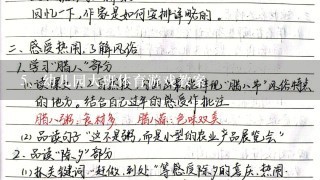 回忆一下,作家是如何安排详略的。
二、感受热闹,了解风俗
1. 学习"腊八"部分
特点
的地方。结合自己过年的感受作批注
腊八粥:食材多 腊八蒜:色味双美
(2) 品读句子"这不是粥,而是小型的农业产品展览会"
2. 品读"除夕"部分
(1) 抓关键词…赶做、到处"等感受除夕的喜庆、热闹.
5、幼儿园大班体育游戏教案